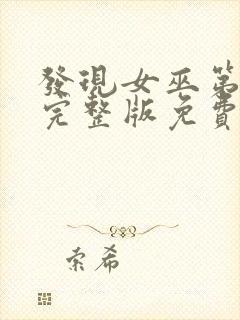 發現女巫第
完整版免費
索希